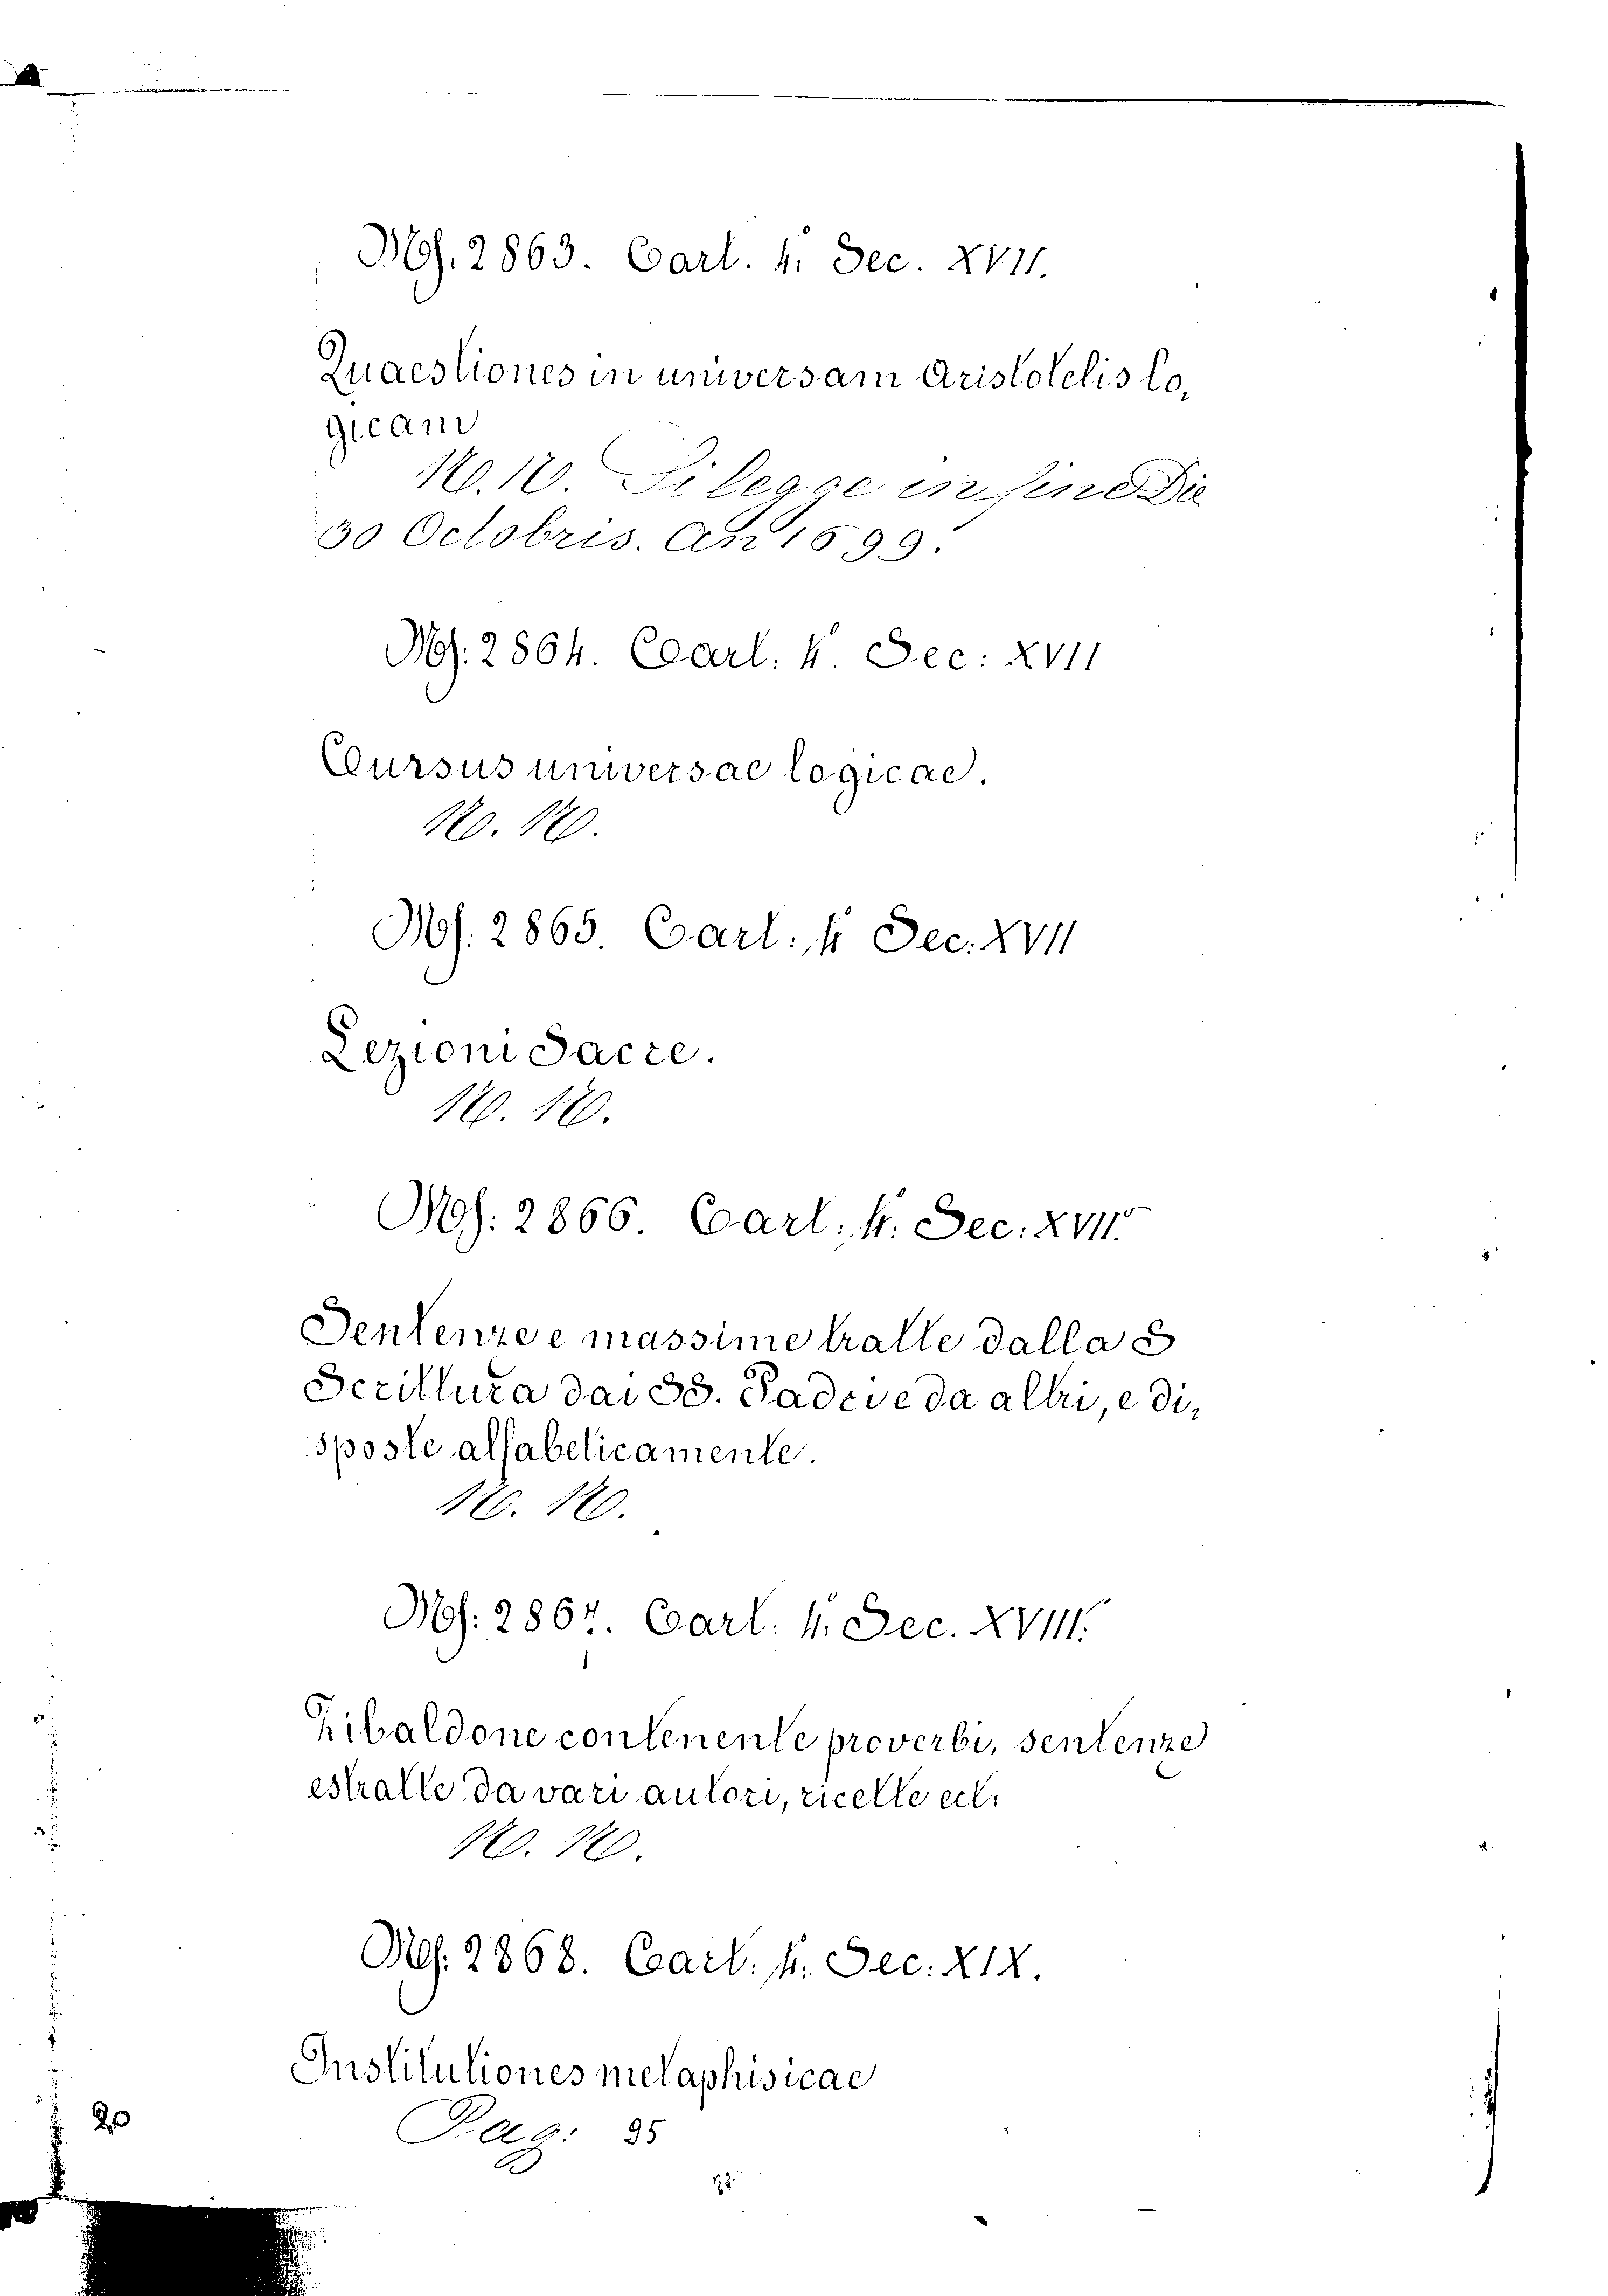 Ms. 2863. Cart. 4. Sec. XVII.
Quaestiones in universam Aristotelis lo-
gicam
N. N. Si legge in fine Die
30 Octobris. An 1699.
Ms. 2864. Cart. 4. Sec: XVII
Cursus universae logicae.
N. N.
Ms. 2865. Cart. 4 Sec. XVII
Lezioni Sacre.
N. N.
Ms. 2866. Cart. 4. Sec: XVII.
Sentenze e massime tratte dalla S
Scrittura dai SS. Padri e da altri, e di-
sposte alfabeticamente.
N. N.
Ms. 2867. Cart. 4. Sec. XVIII.
Zibaldone contenente proverbi, sentenze
estratte da vari autori, ricette ect.
N. N.
Ms. 2868. Cart. 4. Sec: XIX.
Institutiones metaphisicae
Pag: 95
20